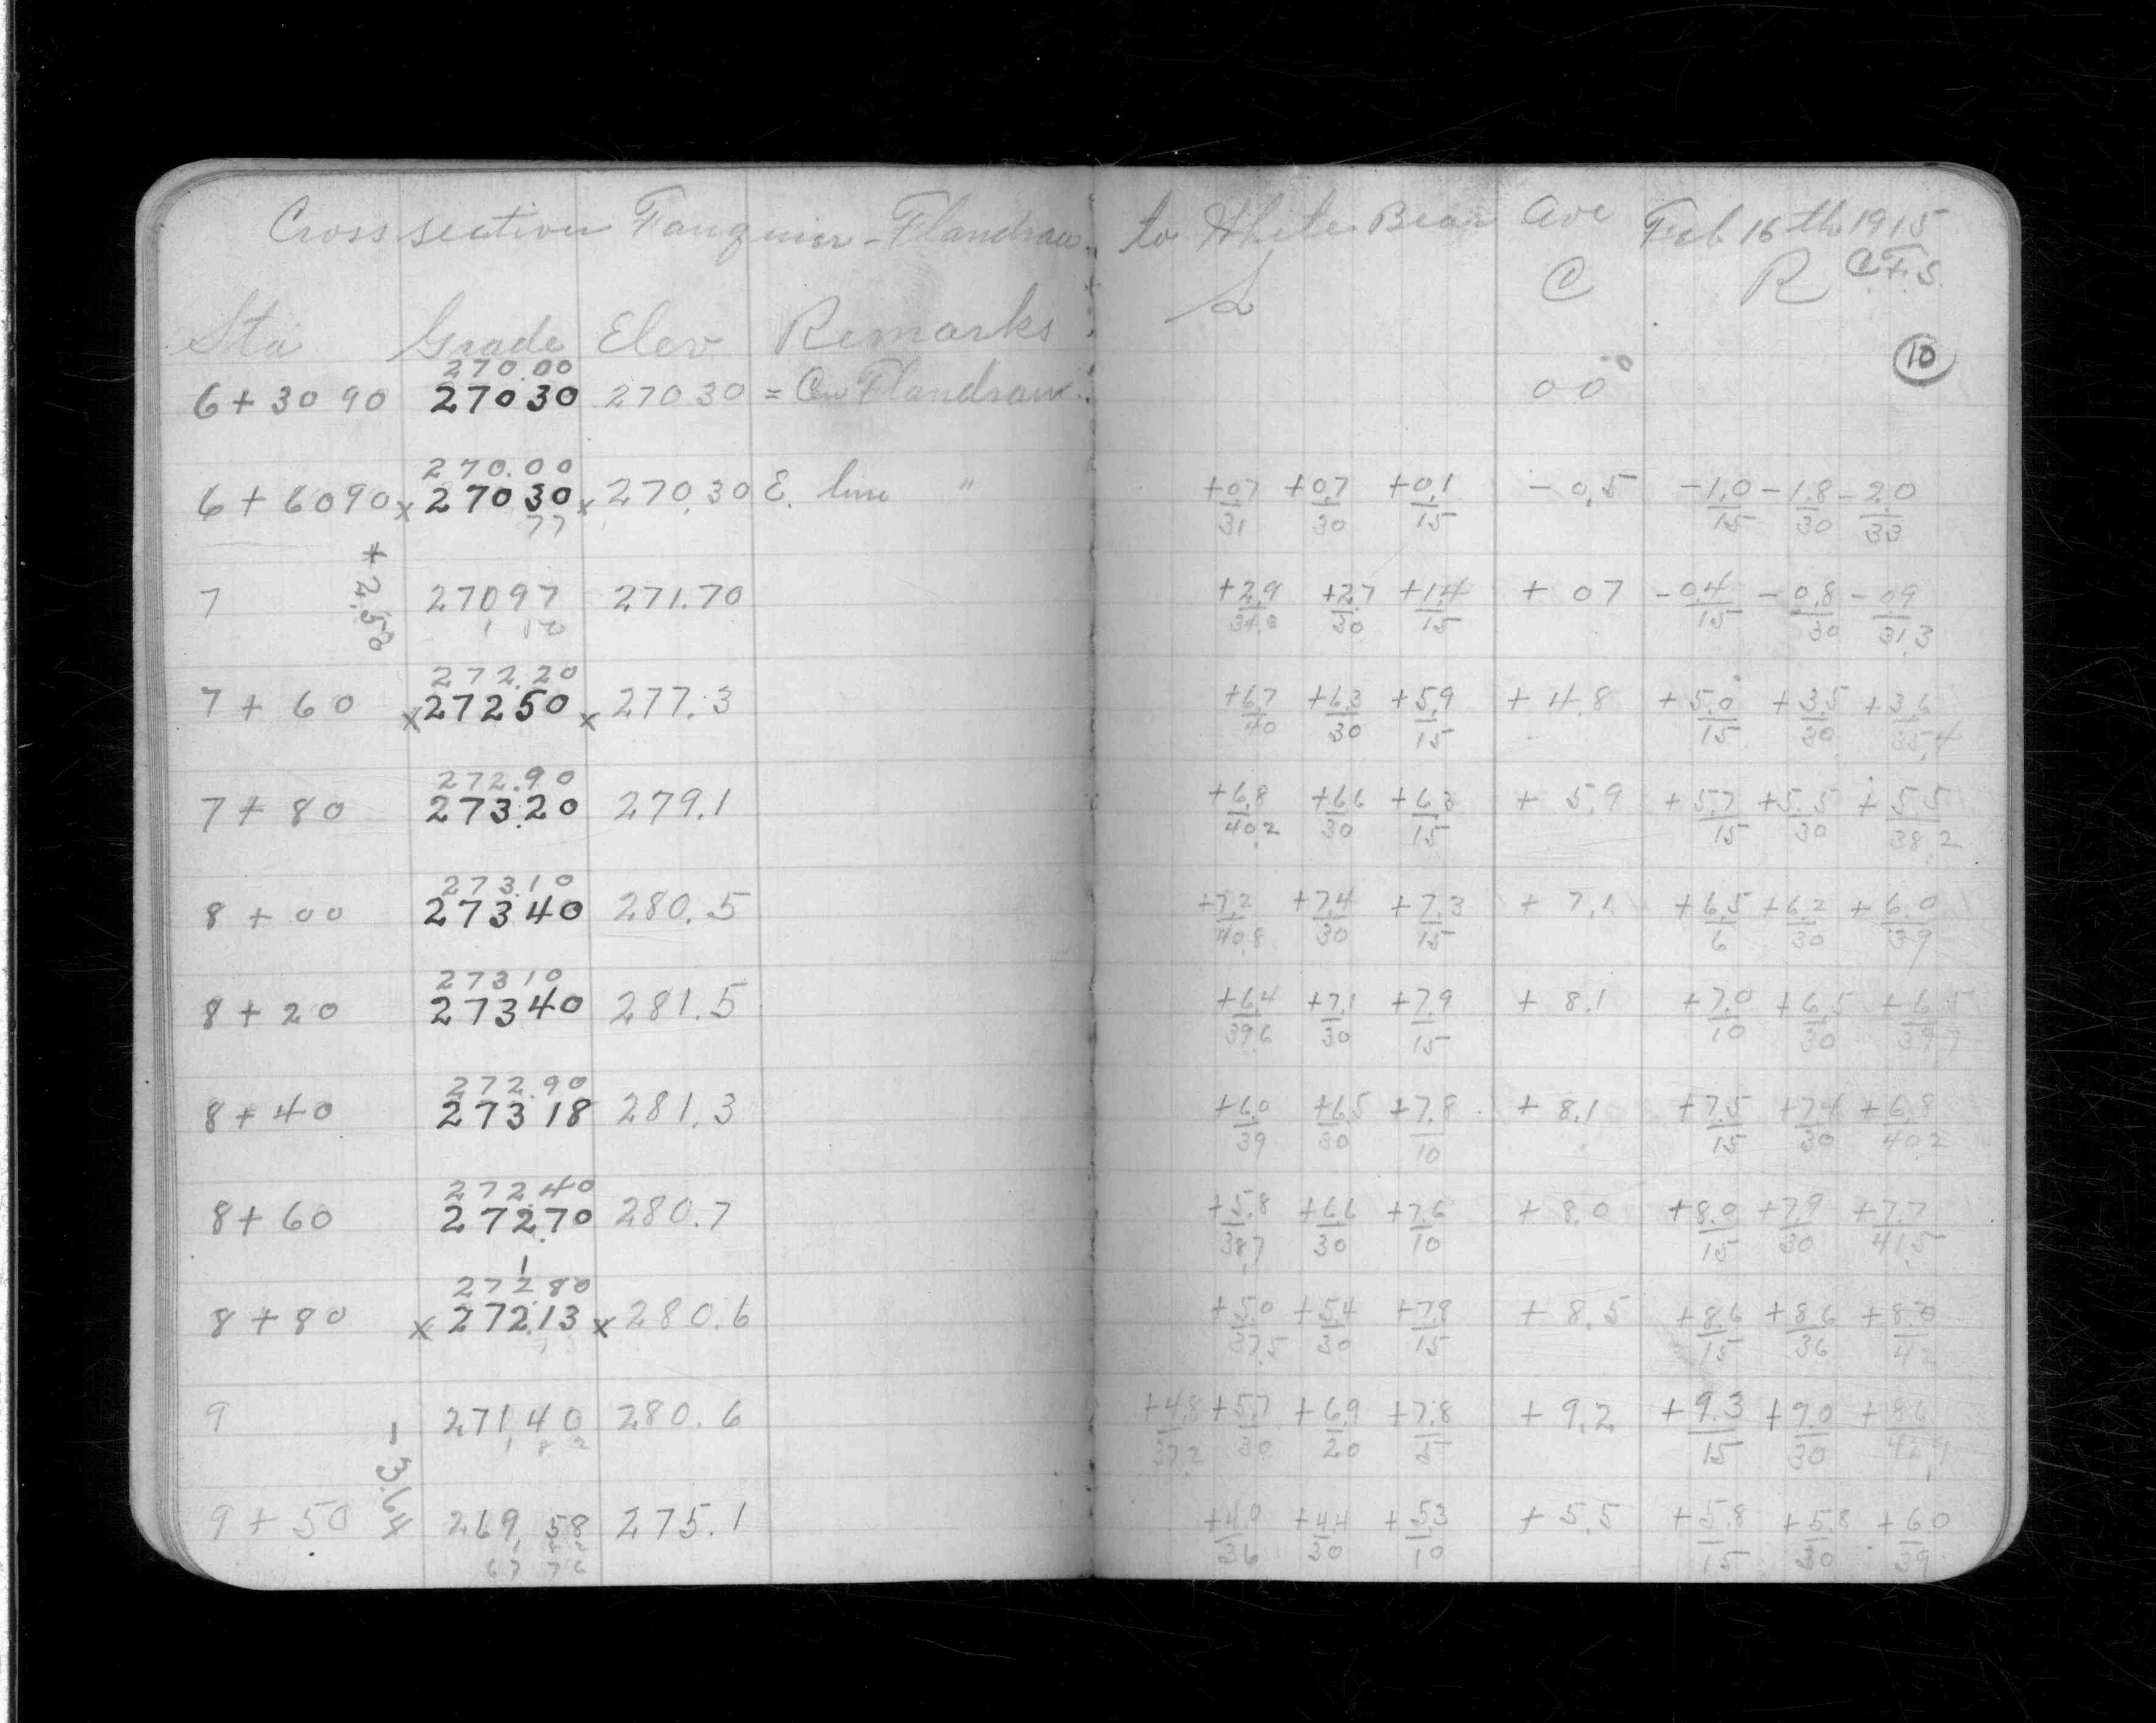 Cross section Fauquier - Flandrau to White Bear Ave Feb 16th 1915
L C R C.F.S.
Sta Grade Elev Remarks
10
270.00
6+30 90 270 30 270 30 = Cen Flandrau 00
270.00
6+60 90 x 270 30 x 270.30 E. line " +0.7/31 +0.7/30 +0.1/15 -0.5 -1.0/15 -1.8/30 -2.0/33
77
+2.50
7 270 97 271.70 +2.9/34.3 +2.7/30 +1.4/15 +0.7 -0.4/15 -0.8/30 -0.9/31.3
272.20
7+60 x 272 50 x 277.3 +6.7/40 +6.3/30 +5.9/15 +4.8 +5.0/15 +3.5/30 +3.6/35.4
272.90
7+80 273.20 279.1 +6.8/40.2 +6.6/30 +6.3/15 +5.9 +5.7/15 +5.5/30 +5.5/38.2
273.10
8+00 273 40 280.5 +7.2/40.8 +7.4/30 +7.3/15 +7.1 +6.5/6 +6.2/30 +6.0/39
273 10
8+20 273 40 281.5 +6.4/39.6 +7.1/30 +7.9/15 +8.1 +7.0/10 +6.5/30 +6.5/39.7
272.90
8+40 273 18 281.3 +6.0/39 +6.5/30 +7.8/10 +8.1 +7.5/15 +7.4/30 +6.8/40.2
272.40
8+60 272.70 280.7 +5.8/38.7 +6.6/30 +7.6/10 +8.0 +8.0/15 +7.9/30 +7.7/41.5
1
272 80
8+80 x 272.13 x 280.6 +5.0/37.5 +5.4/30 +7.8/15 +8.5 +8.6/15 +8.6/36 +8.0/42
9 271.40 280.6 +4.8/37.2 +5.7/30 +6.9/20 +7.8/5 +9.2 +9.3/15 +9.0/30 +8.6
1 82
-3.64
9+50 269.58 275.1 +4.0/36 +4.4/30 +5.3/10 +5.5 +5.8/15 +5.8/30 +6.0/39
67 76